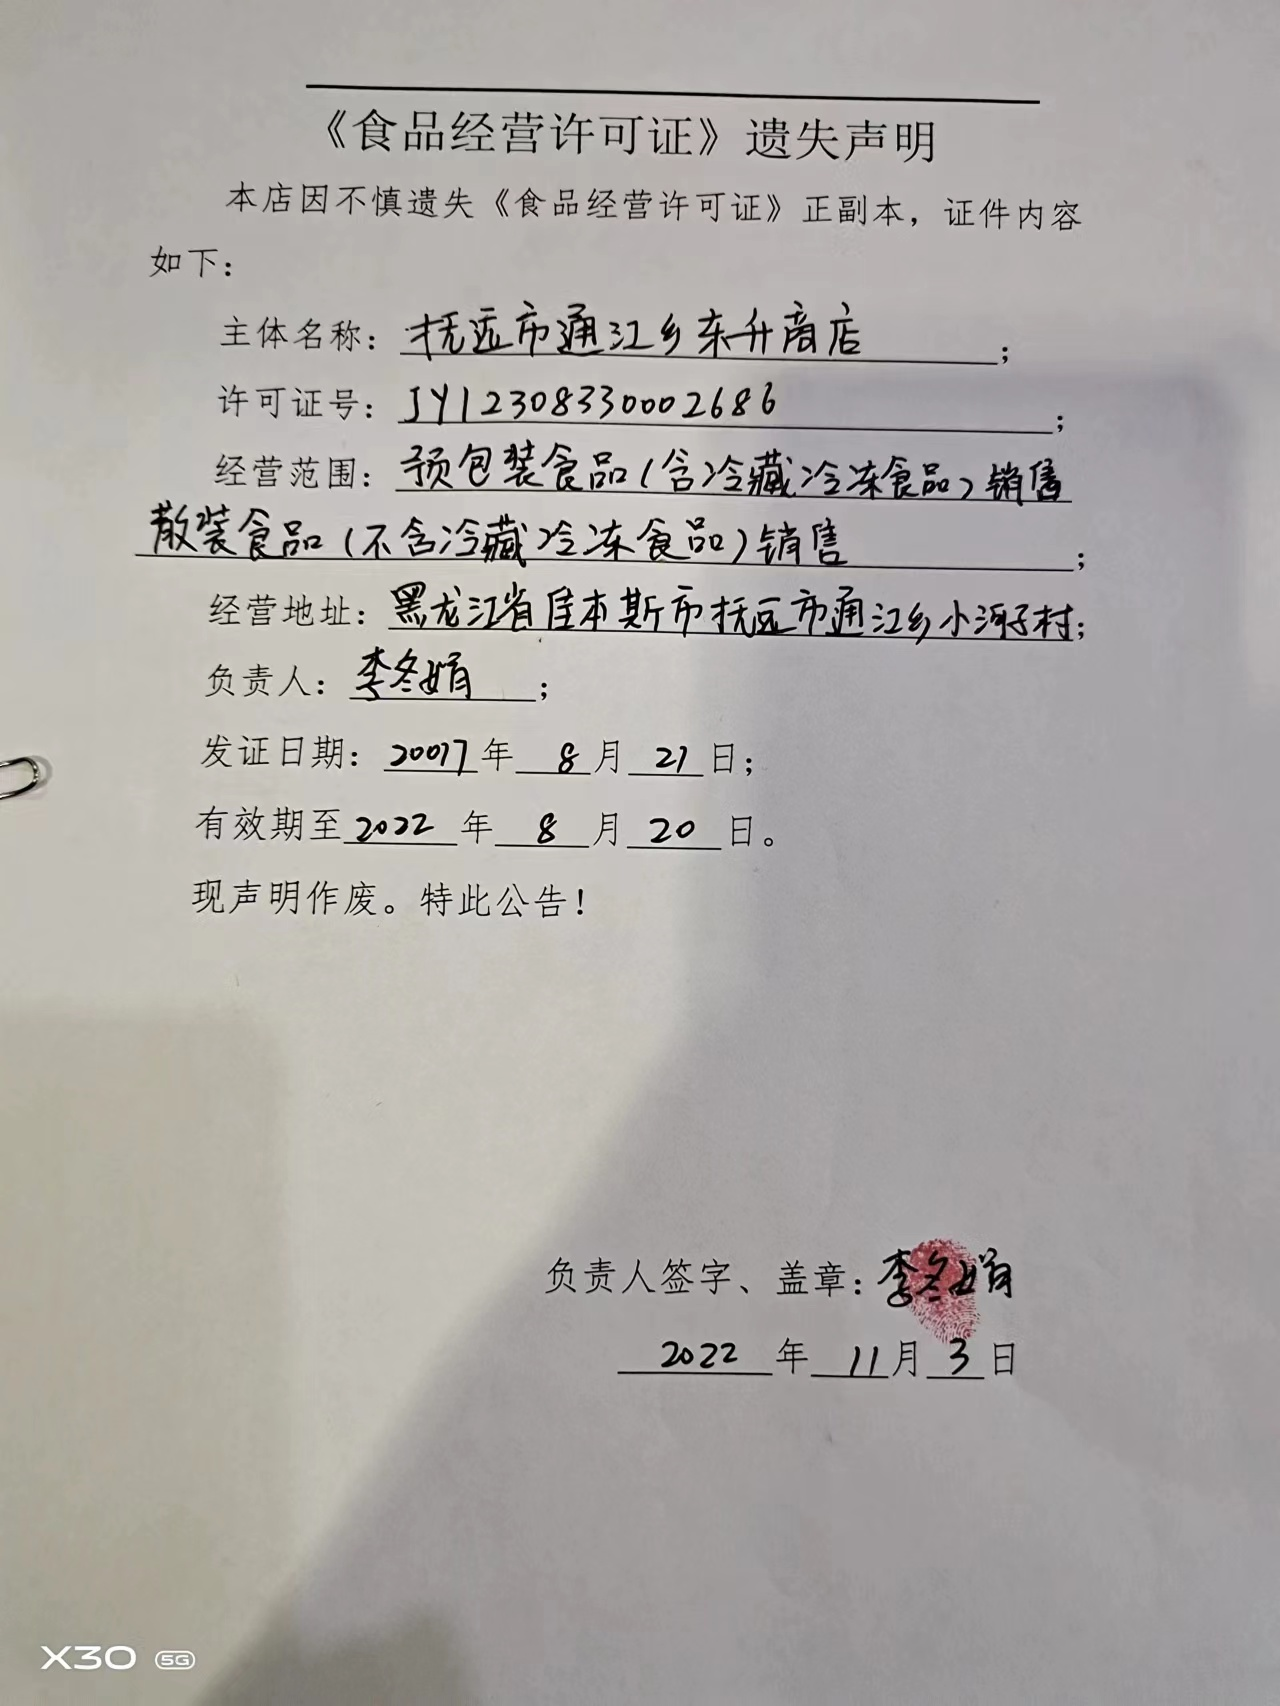 《食品经营许可证》遗失声明
本店因不慎遗失《食品经营许可证》正副本，证件内容
如下：
主体名称：抚远市通江乡东升商店；
许可证号：JY12308330002686；
经营范围：预包装食品(含冷藏冷冻食品)销售
散装食品(不含冷藏冷冻食品)销售；
经营地址：黑龙江省佳木斯市抚远市通江乡小河子村；
负责人：李冬娟；
发证日期：20017年8月21日；
有效期至2022年8月20日。
现声明作废。特此公告！
负责人签字、盖章：李冬娟
2022年11月3日
X30 5G